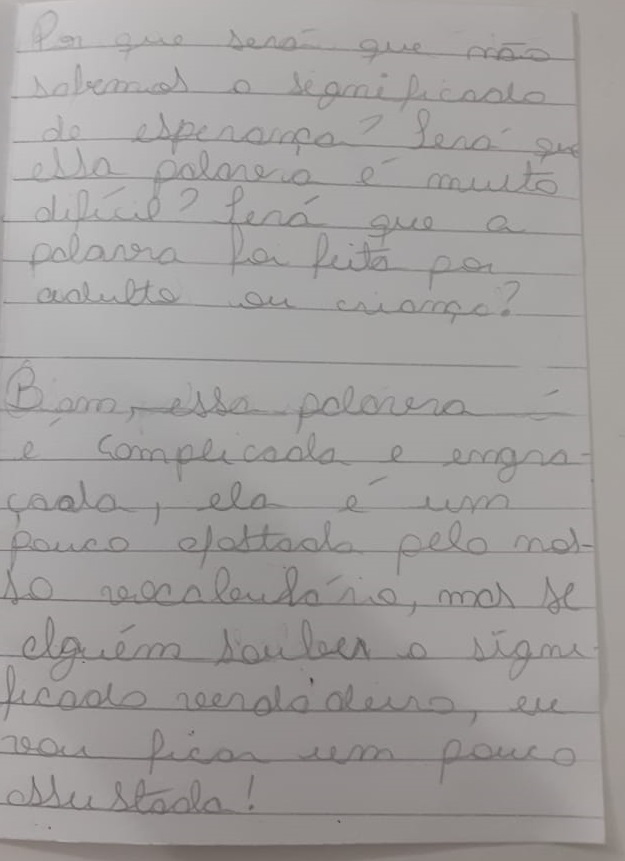 Por que será que não
sabemos o significado
de esperança? Será que
essa palavra é muito
difícil? Será que a
palavra foi feita por
adulto ou criança?
Bom, essa palavra é
é complicada e engra-
çada, ela é um
pouco afastada pelo nos-
so vocabulário, mas se
alguém souber o signi-
ficado verdadeiro, eu
vou ficar um pouco
assustada!